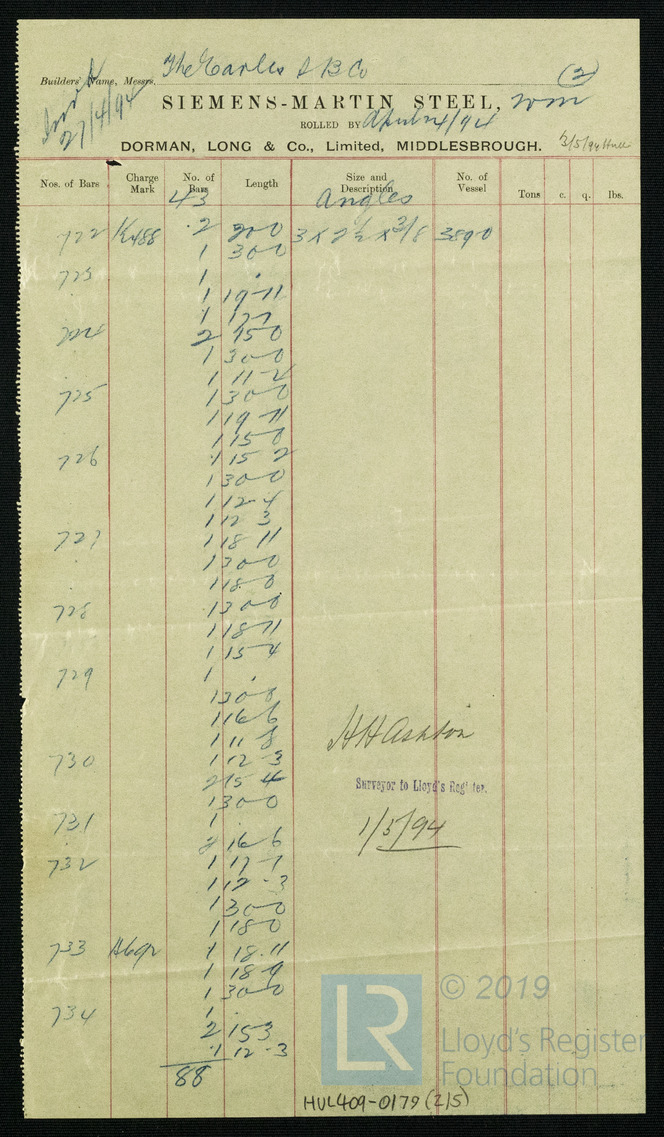 Builders' Name, Messrs. The Earles S B Co (2)
27/4/94
SIEMENS-MARTIN STEEL,
ROLLED BY April 24/94
DORMAN, LONG & Co., Limited, MIDDLESBROUGH. 3/5/94 Hull
Nos. of Bars Charge Mark No. of Bars Length Size and Description No. of Vessel Tons c. q. lbs.
43 Angles
722 K488 2 20-0 3 x 2½ x 3/8 3890
1 30-0
723 1 .
1 19-11
1 17-7
724 2 15-0
1 30-0
1 11-2
725 1 30-0
1 19-11
1 15-0
726 1 15 2
1 30-0
1 12-4
1 12 3
727 1 18 11
1 30-0
1 18-0
728 1 30-0
1 18-11
1 15-4
729 1 .
1 30-0
1 16-6
1 11-8
730 1 12-3
2 15 4
1 30-0
731 1 .
2 16-6
732 1 17-7
1 12-3
1 30-0
1 18-0
733 1 18.11
1 18-9
1 30-0
734 1 .
2 15 3
1 12-3
88
H H Ashton
Surveyor to Lloyd's Register.
1/5/94
LR © 2019
Lloyd's Register
Foundation
HUL409-0179 (2/5)